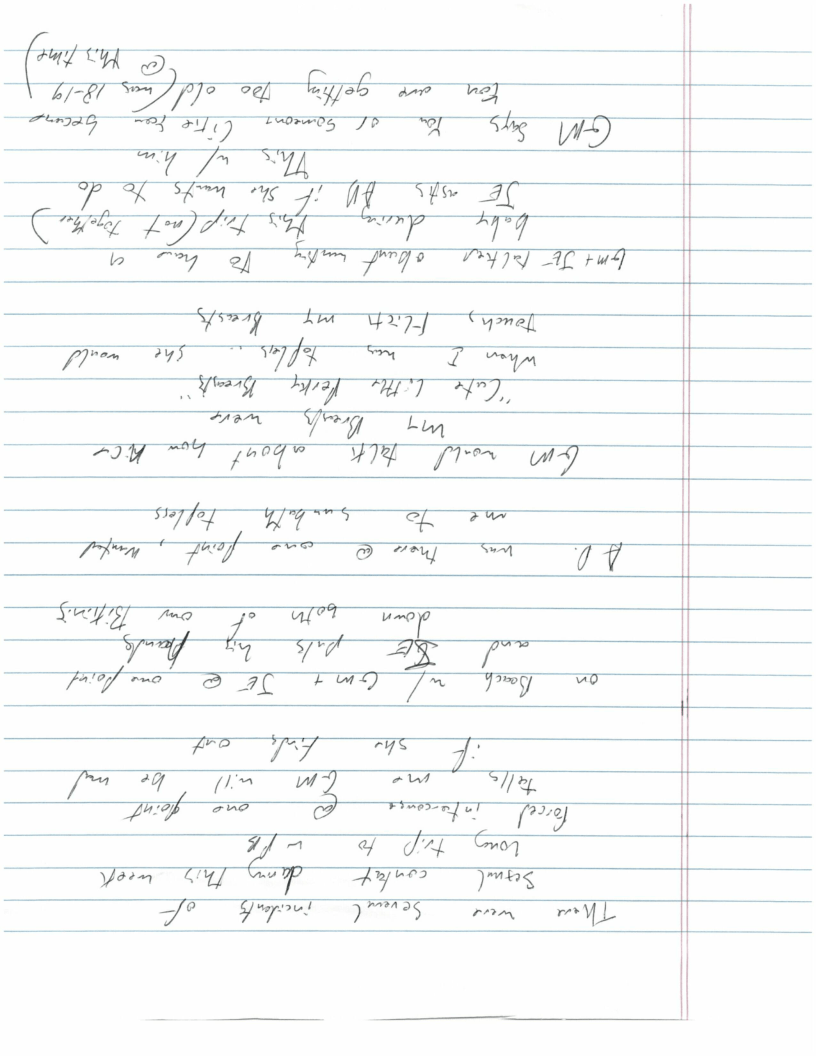 There were several incidents of
sexual contact during this week
long trip to WPB
forced intercourse @ one point
tells me GM will be mad
if she finds out
on Beach w/ GM + JE @ one point
and JE puts his hands
down both of our Bikinis
A D. was there @ one point, wanted
me to sunbath topless
GM would talk about how Nice
My Breasts were
"Cute little Perky Breasts"
When I was topless .. she would
touch, flick my Breasts
GM + JE talked about wanting to have a
baby during this trip (not together)
JE asks AD if she wants to do
this w/ him
GM says You or someone like you because
You are getting too old (was 18-19
@ this time)